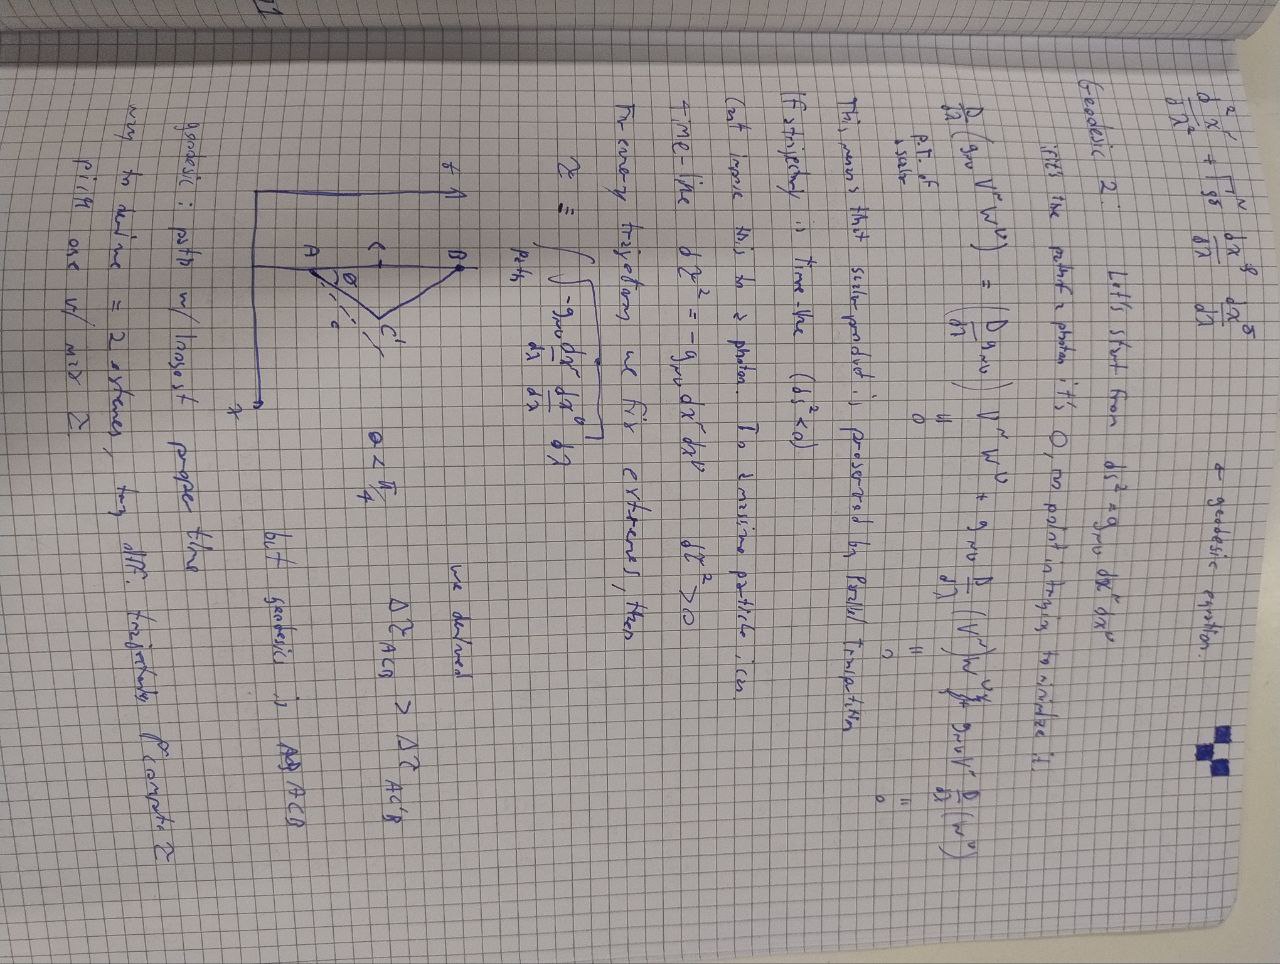 d²x^μ/dλ² + Γ^μ_γδ dx^γ/dλ dx^δ/dλ ← geodesic equation.
Geodesic 2: Let's start from ds² = g_μν dx^μ dx^ν
if it's the path of a photon it's 0, no point in trying to minimize it.
D/dλ (g_μν V^μ W^ν) = (D/dλ g_μν) V^μ W^ν + g_μν D/dλ (V^μ) W^ν + g_μν V^μ D/dλ (W^ν)
P.T. of a scalar
= 0
= 0
= 0
This means that scalar product is preserved by parallel
If a trajectory is time-like (ds² < 0)
Can't impose this to a photon. To a massive particle, I can
time-like dτ² = -g_μν dx^μ dx^ν dτ² > 0
In every trajectory we fix extremes, then
τ = ∫ √(-g_μν dx^μ/dλ dx^ν/dλ) dλ
path
t
A
C
B
θ
c
C'
x
θ < π/4
we defined
Δτ ACB > Δτ AC'B
but geodesic is ACB
geodesic: path w/ longest proper time
way to derive = 2 extremes, try diff. trajectory, compute τ
Pick one w/ max τ